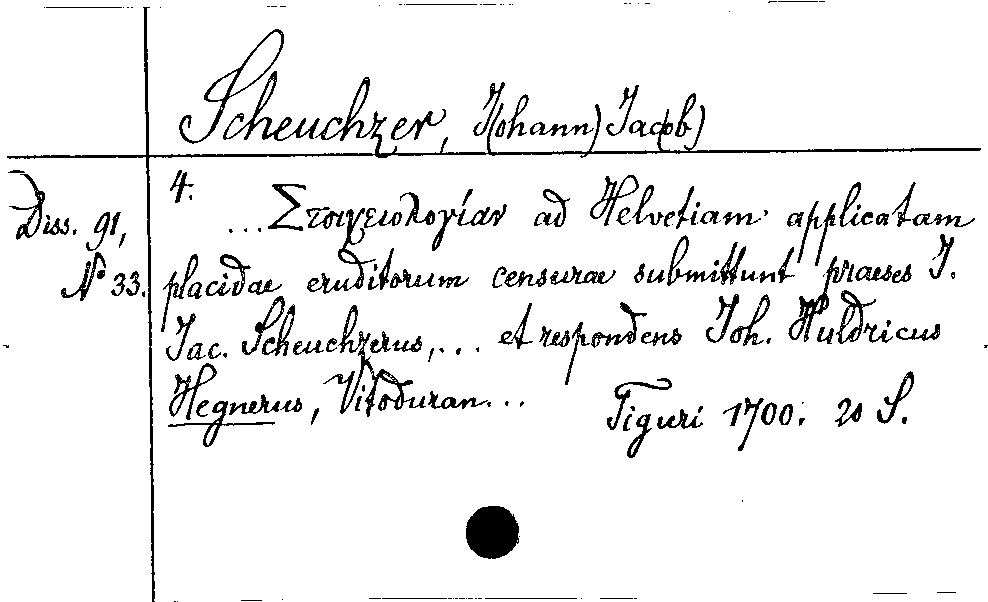 Scheuchzer, J(ohann) Jac(ob)
4.
Diss. 91,
Nº 33.
...Στοιχειολογίαν ad Helvetiam applicatam
placidae eruditorum censurae submittunt praeses J.
Jac. Scheuchzerus,... et respondens Joh. Huldricus
Hegnerus, Vitoduran...
Tiguri 1700. 20 S.